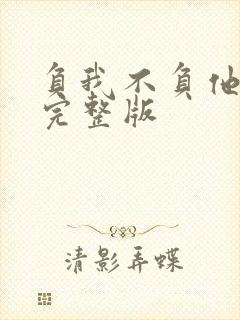 负我不负他
完整版
清影弄蝶